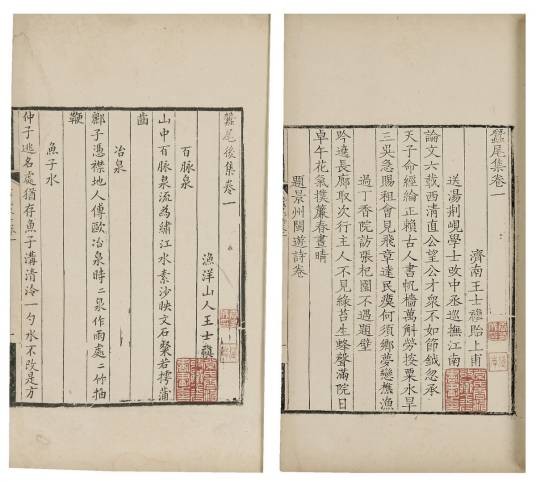 蠶尾集卷一
濟南王士禛貽上甫
送湯荊峴學士改中丞巡撫江南
論文六載西清直公望公才衆不如節鉞忽承
天子命經綸正賴古人書帆檣萬斛勞挽粟水旱
三吳急賜租會見飛章達民瘼何須鄉夢戀樵漁
過丁香院訪張杞園不遇題壁
吟遶長廊取次行主人不見綠苔生蜂聲滿院日
卓午花氣撲簾春晝晴
題景州閩遊詩卷
蠶尾後集卷一
漁洋山人王士禛
百脈泉
山中百脈泉流為繡江水素沙映文石粲若摴蒲
齒
冶泉
酈子憑襟地人傳歐冶泉時二泉作雨處二竹抽
鞭
魚子水
仲子逃名處猶存魚子溝清泠一勺水不改是方